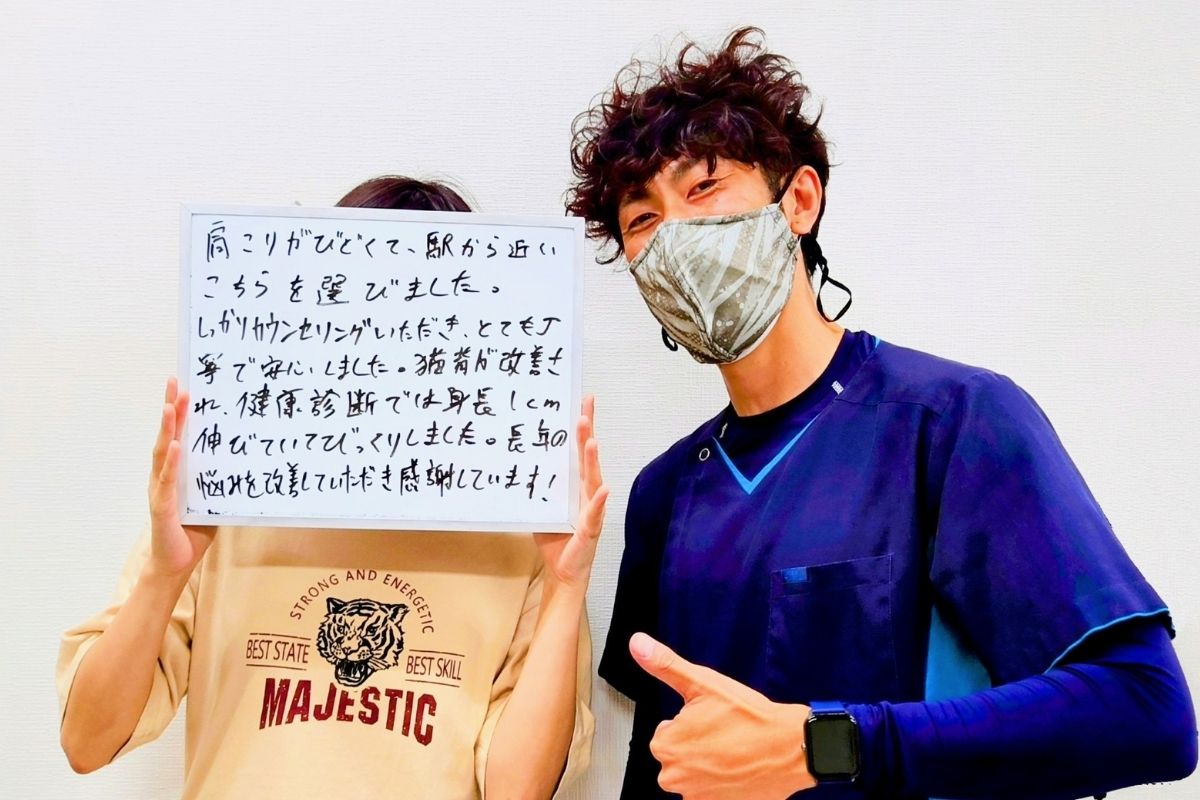 肩こりがひどくて、駅から近い
こちらを選びました。
しっかりカウンセリングいただき、とても丁
寧で安心しました。猫背が改善さ
れ、健康診断では身長1cm
伸びていてびっくりしました。長年の
悩みを改善していただき感謝しています!
STRONG AND ENERGETIC
BEST STATE
BEST SKILL
MAJESTIC